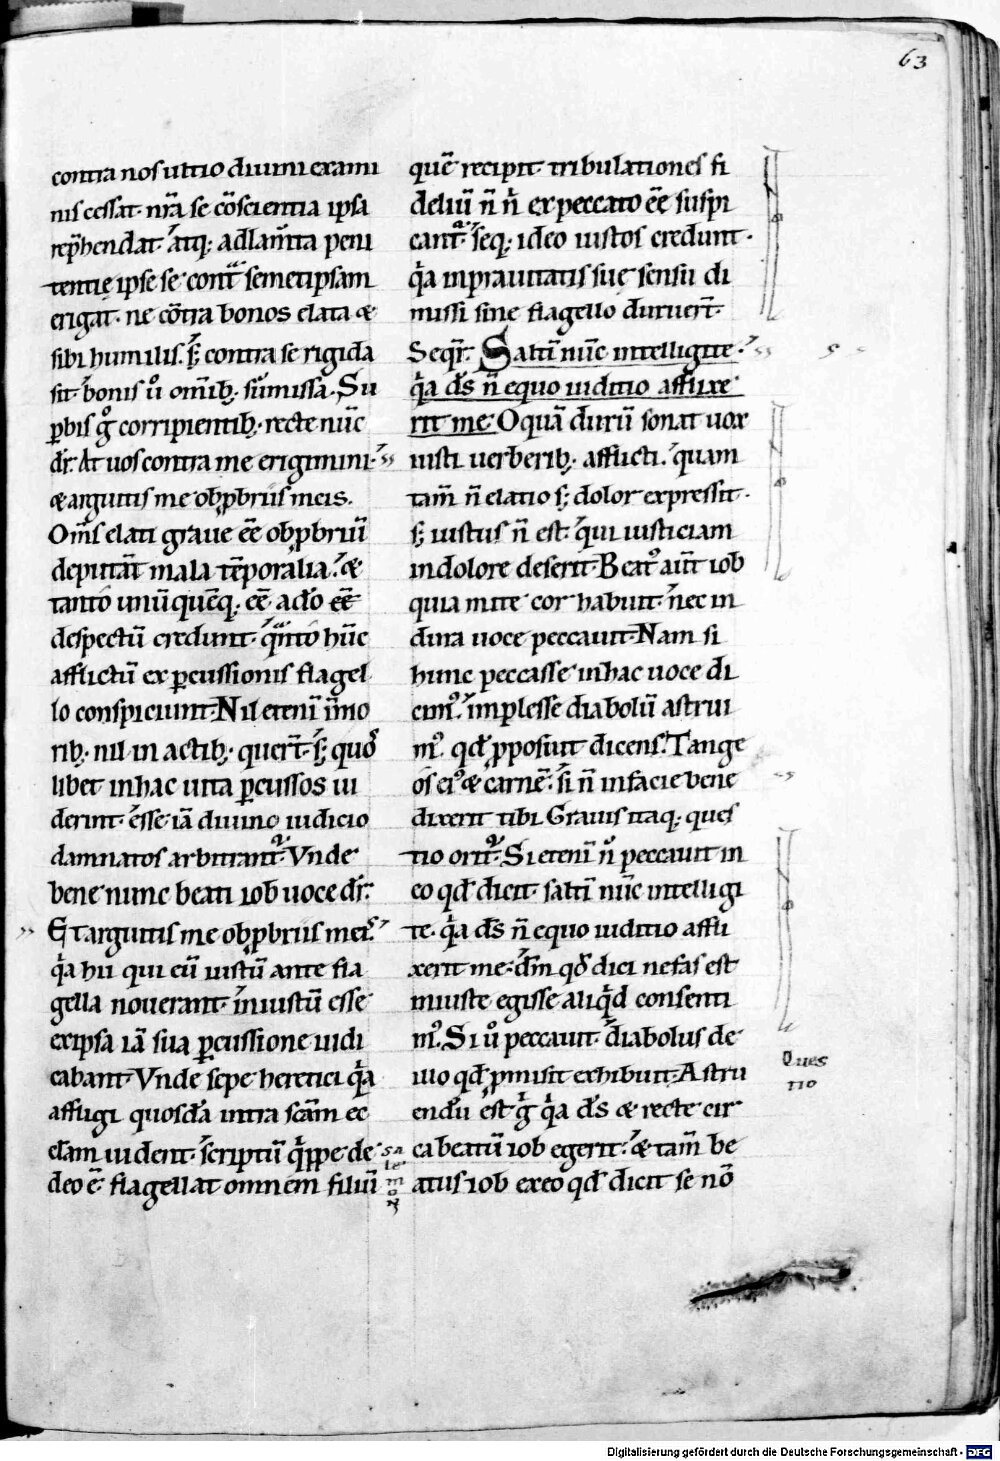 63
contra nos ultio diuini exami
nis cessat. nr̄a se cōscientia ipsa
rep̄hendat. atq; ad lam̄ta peni
tentię ipse se contᷓ semetipsam
erigat. ne cōtra bonos elata &
sibi humilis. sꝫ contra se rigida
sit. bonis u̾o om̄ibꝫ. sūmissa. Su
ꝑbis g̊ corripientibꝫ. recte nūc
dr̄. At uos contra me erigimini.
& arguitis me obꝓbriis meis.
Om̄s elati graue eē obꝓbriū
deputāt mala tēporalia. &
tanto unūquēq; eē a do eē
despectū credunt. qᷓnto hūc
afflictū ex ꝑcussionis flagel
lo conspiciunt. Nil eteni in mo
ribꝫ. nil in actibꝫ. querūt. sꝫ quos
libet in hac uita ꝑcussos ui
derint. esse iā diuino iudicio
damnatos arbitrantᷣ. Vnde
bene nunc beati iob uoce dr̄.
Et arguitis me obꝓbriis meis.
qᷓa hii qui eū iustū ante fla
gella nouerant. iniustū esse
ex ipsa iā sua ꝑcussione iudi
cabant. Vnde sepe heretici qᷓa
affligi quosdā intra scām ec
clam uident. scriptū qᷓppe de
deo ē. flagellat omnem filiū
sa
le
mo
N
quē recipit. tribulationes fi
deliū n̄ n̄ ex peccato eē suspi
cantᷣ. seq; ideo iustos credunt.
qᷓa in prauitatis sue sensu di
missi sine flagello duruerūt.
Seqr̄. Saltī nūc intelligite.
qᷓa ds̄ n̄ equo iuditio afflixe
rit me. O quā durū sonat uox
iusti uerberibꝫ. afflicti. quam
tam̄ n̄ elatio sꝫ dolor expressit.
sꝫ iustus n̄ est. qui iusticiam
in dolore deserit. Beatꝰ aūt iob
quia mite cor habuit. nec in
dura uoce peccauit. Nam si
hunc peccasse in hac uoce di
cimꝰ. implesse diabolū astrui
mꝰ. qd̄ ꝓposuit dicens. Tange
os eiꝰ & carnē. si n̄ in facie bene
dixerit tibi. Grauis itaq; ques
tio oritᷣ. Si eteni n̄ peccauit in
eo qd̄ dicit. saltī nūc intelligi
te. qᷓa ds̄ n̄ equo iuditio affli
xerit me. dm̄ qd̄ dici nefas est
iniuste egisse aliqᷓd consenti
mꝰ. Si u̾o peccauit. diabolus de
illo qd̄ ꝓmisit exhibuit. Astru
endū est g̊ qᷓa ds̄ & recte cir
ca beatū iob egerit. & tam̄ be
atus iob ex eo qd̄ dicit se nō
Ques
tio
Digitalisierung gefördert durch die Deutsche Forschungsgemeinschaft - DFG